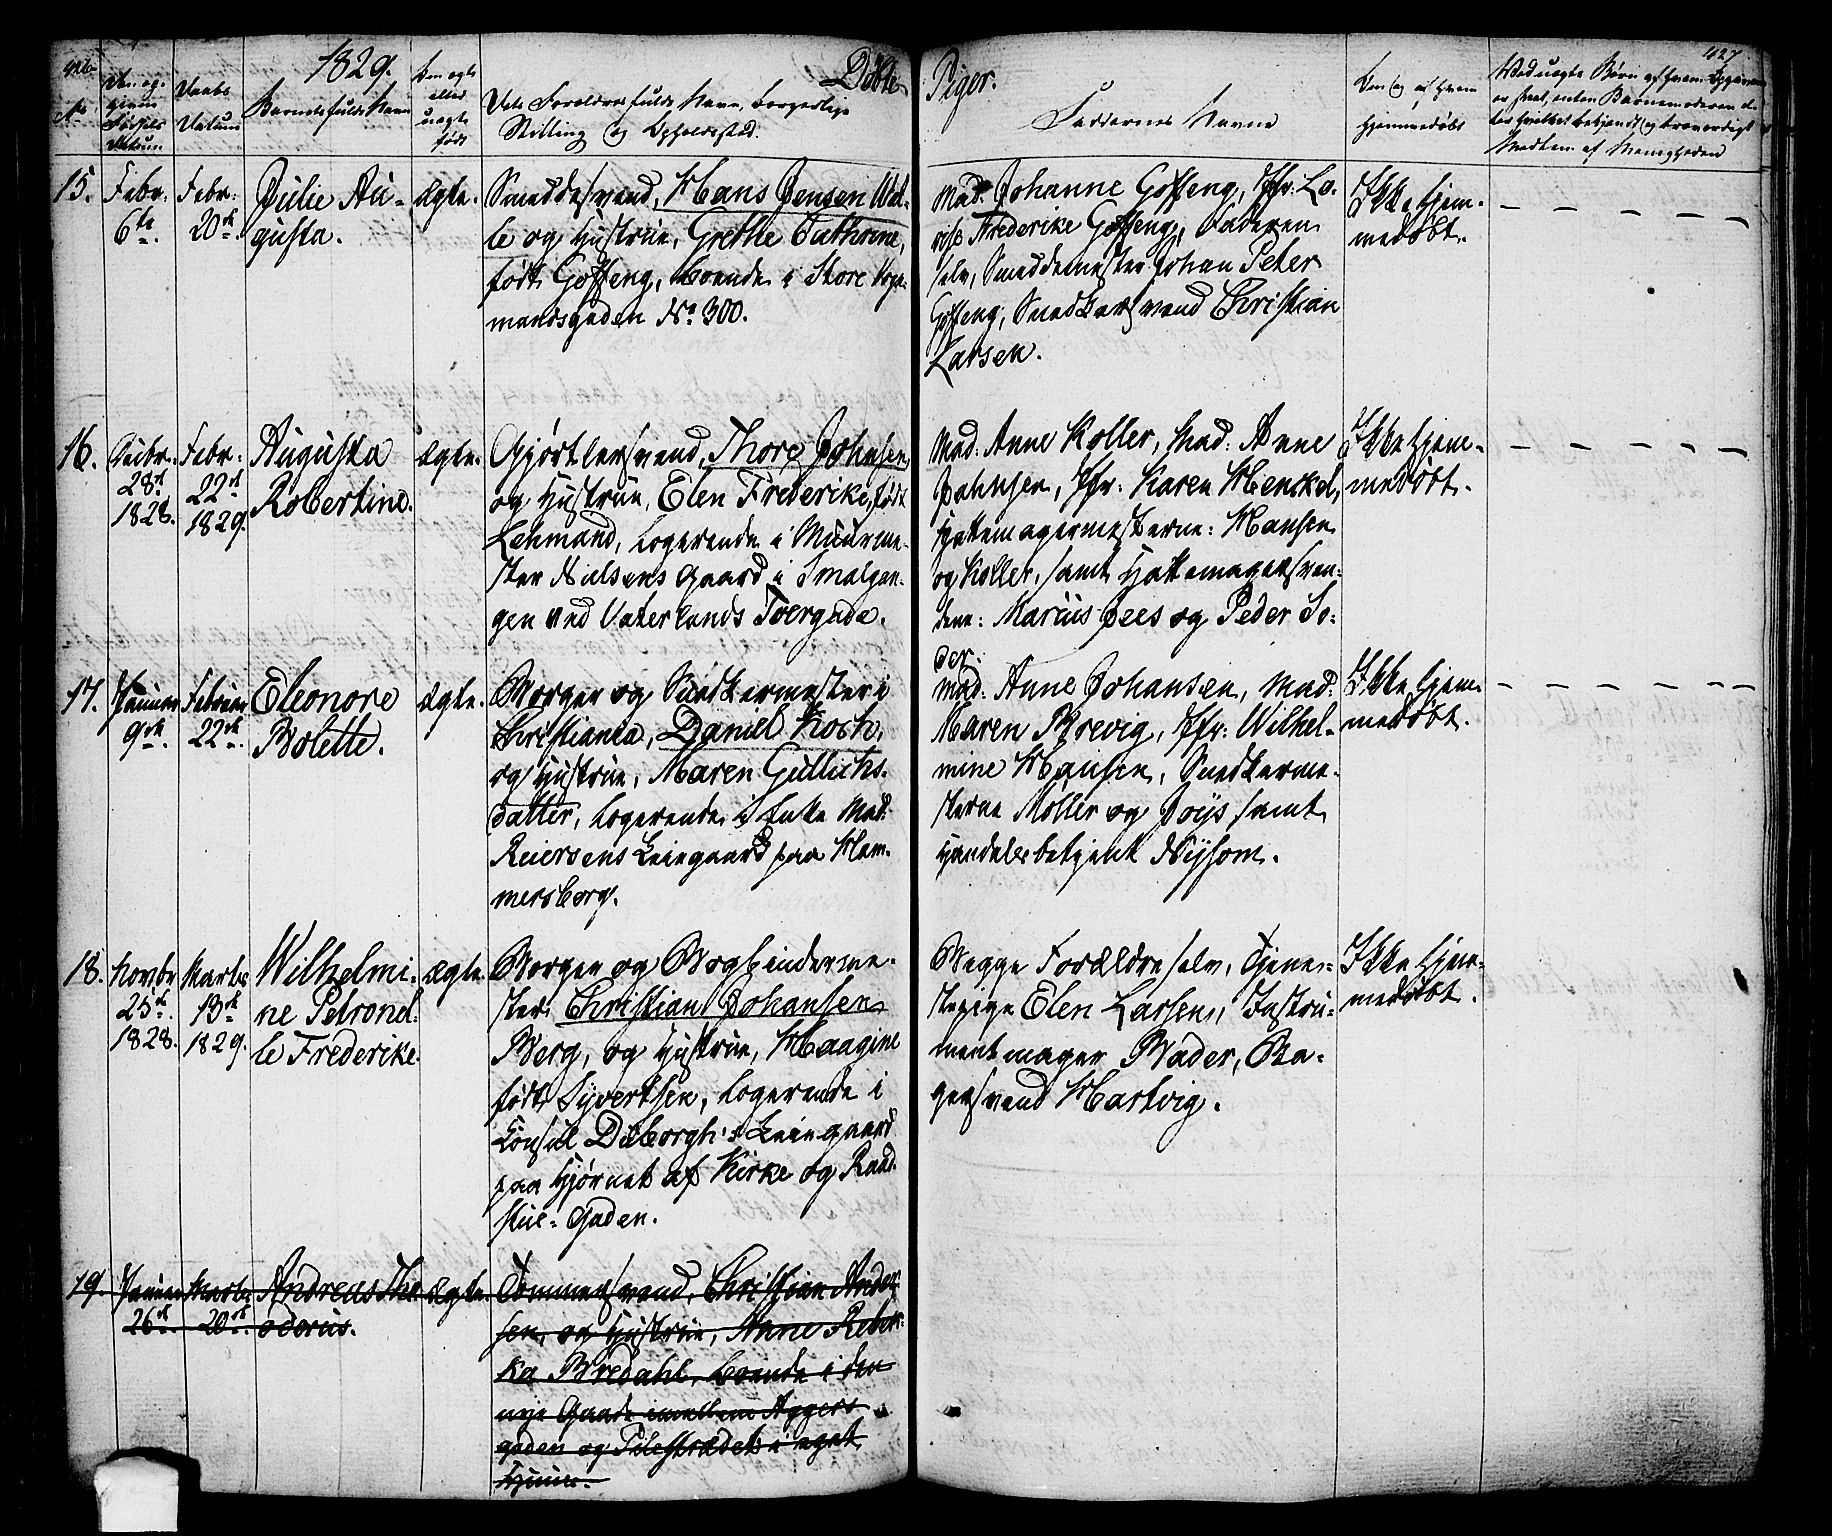 426.
1829.
Døbte
Piger.
427
No
Den og-
givne
Fødsels
Datum
Daabs
Datum
Barnets fulde Navn
Om ægte
eller
uægte
født
Dets Forældres fulde Navn, borgerlige
Stilling og Opholdssted.
Faddernes Navne
Om og af hvem
hjemmedøbt
Ved uægte Børn af hvem Opgivelsen
er skeet, enten Barnemoderen el-
ler hvilket bekjendt og troværdigt
Medlem af Menigheden
15.
Febr:
6te.
Febr:
20de.
Julie Au-
gusta.
Ægte.
Smeddesvend, Hans Jensen Wal-
le og Hustrue, Grethe Cathrine,
født Gosseng, boende i Store Voge-
mandsgaden No. 300.
Mad. Johanne Gosseng, Jfr. Lo-
vise Frederike Gosseng, Faderen
selv, Smeddemester Johan Peter
Gosseng, Snedkersvend Christian
Larsen.
Ikke hjem-
medøbt.
16.
Decbr.
28de
1828.
Febr:
22de
1829.
Augusta
Robertine.
Ægte.
Gjørtlersvend, Thore Johnsen
og Hustrue, Elen Frederike, født
Lehmand, logerende i Muurme-
ster Nielsens Gaard i Smalgan-
gen ved Vaterlands Tvergade.
Mad: Anne Koller, Mad: Anne
Johnsen, Jfr: Karen Henckel,
Hattemagermesterne: Hansen
og Koller, samt Hattemagersven-
dene: Marcus Jees og Peder So-
der.
Ikke hjem-
medøbt.
17.
Januar
9de.
Februar
22de.
Eleonore
Bolette.
Ægte.
Borger og Snedkermester i
Christiania, Daniel Koch,
og Hustrue, Maren Gullichs-
datter, logerende i Enke Mad:
Reiersens Leiegaard paa Ham-
mersborg.
Mad: Anne Johansen, Mad:
Maren Brevig, Jfr: Wilhel-
mine Hansen, Snedkerme-
sterne Møller og Joys samt
Handelsbetjent Nysom.
Ikke hjem-
medøbt.
18.
Novbr
25de.
1828.
Marts
13de
1829.
Wilhelmi-
ne Petronel-
le Frederike
Ægte.
Borger og Bogbinderme-
ster Christian Johansen
Berg, og Hustrue, Haagine
født Syvertsen, logerende i
Consul Duborgh's Leiegaard
paa Hjørnet af Kirke og Raad-
stue-Gaden.
Begge Forældre selv, Tjene-
stepige Elen Larsen, Instru-
mentmager Bader, Ba-
gersvend Hartvig.
Ikke hjem-
medøbt.
19.
Januar
26de.
Marts
20de.
Andreas The-
odorus.
Ægte.
Tømmersvend, Christian Ander-
sen, og Hustrue, Anne Rebek-
ka Bredahl, boende i den
nye Gaade imellem Aggers-
gaden og Pilestrædet i eget
Huus.